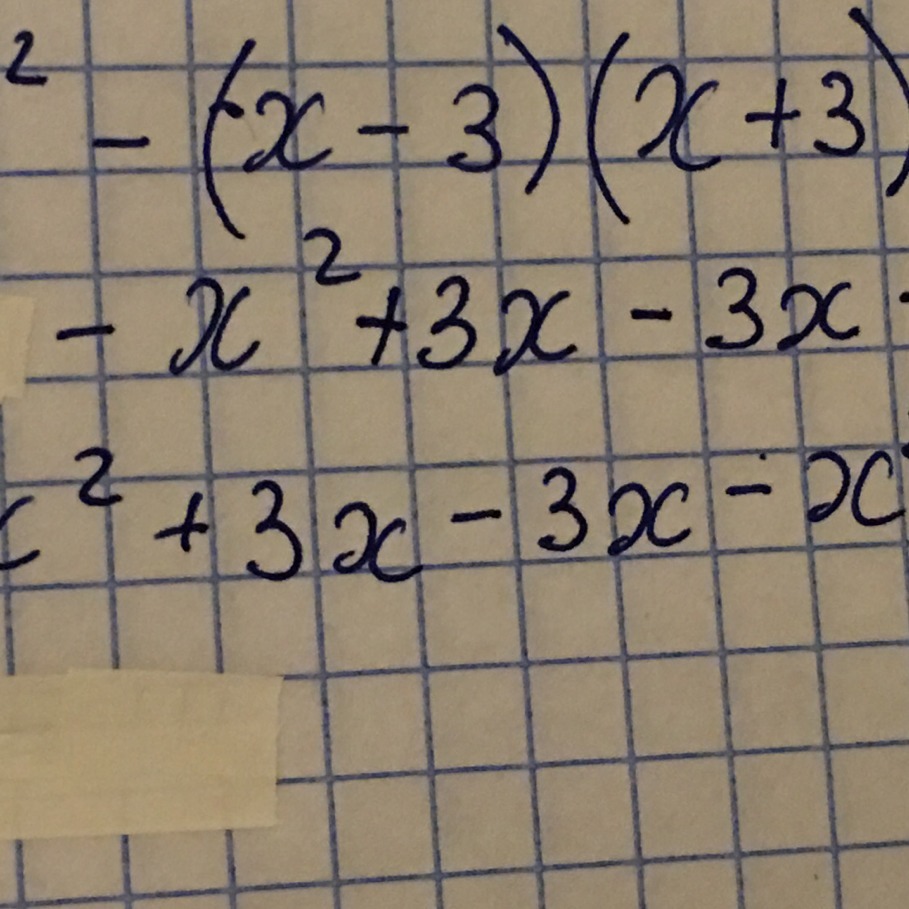 ² - (x - 3)(x + 3)
- x² + 3x - 3x -
x² + 3x - 3x - x